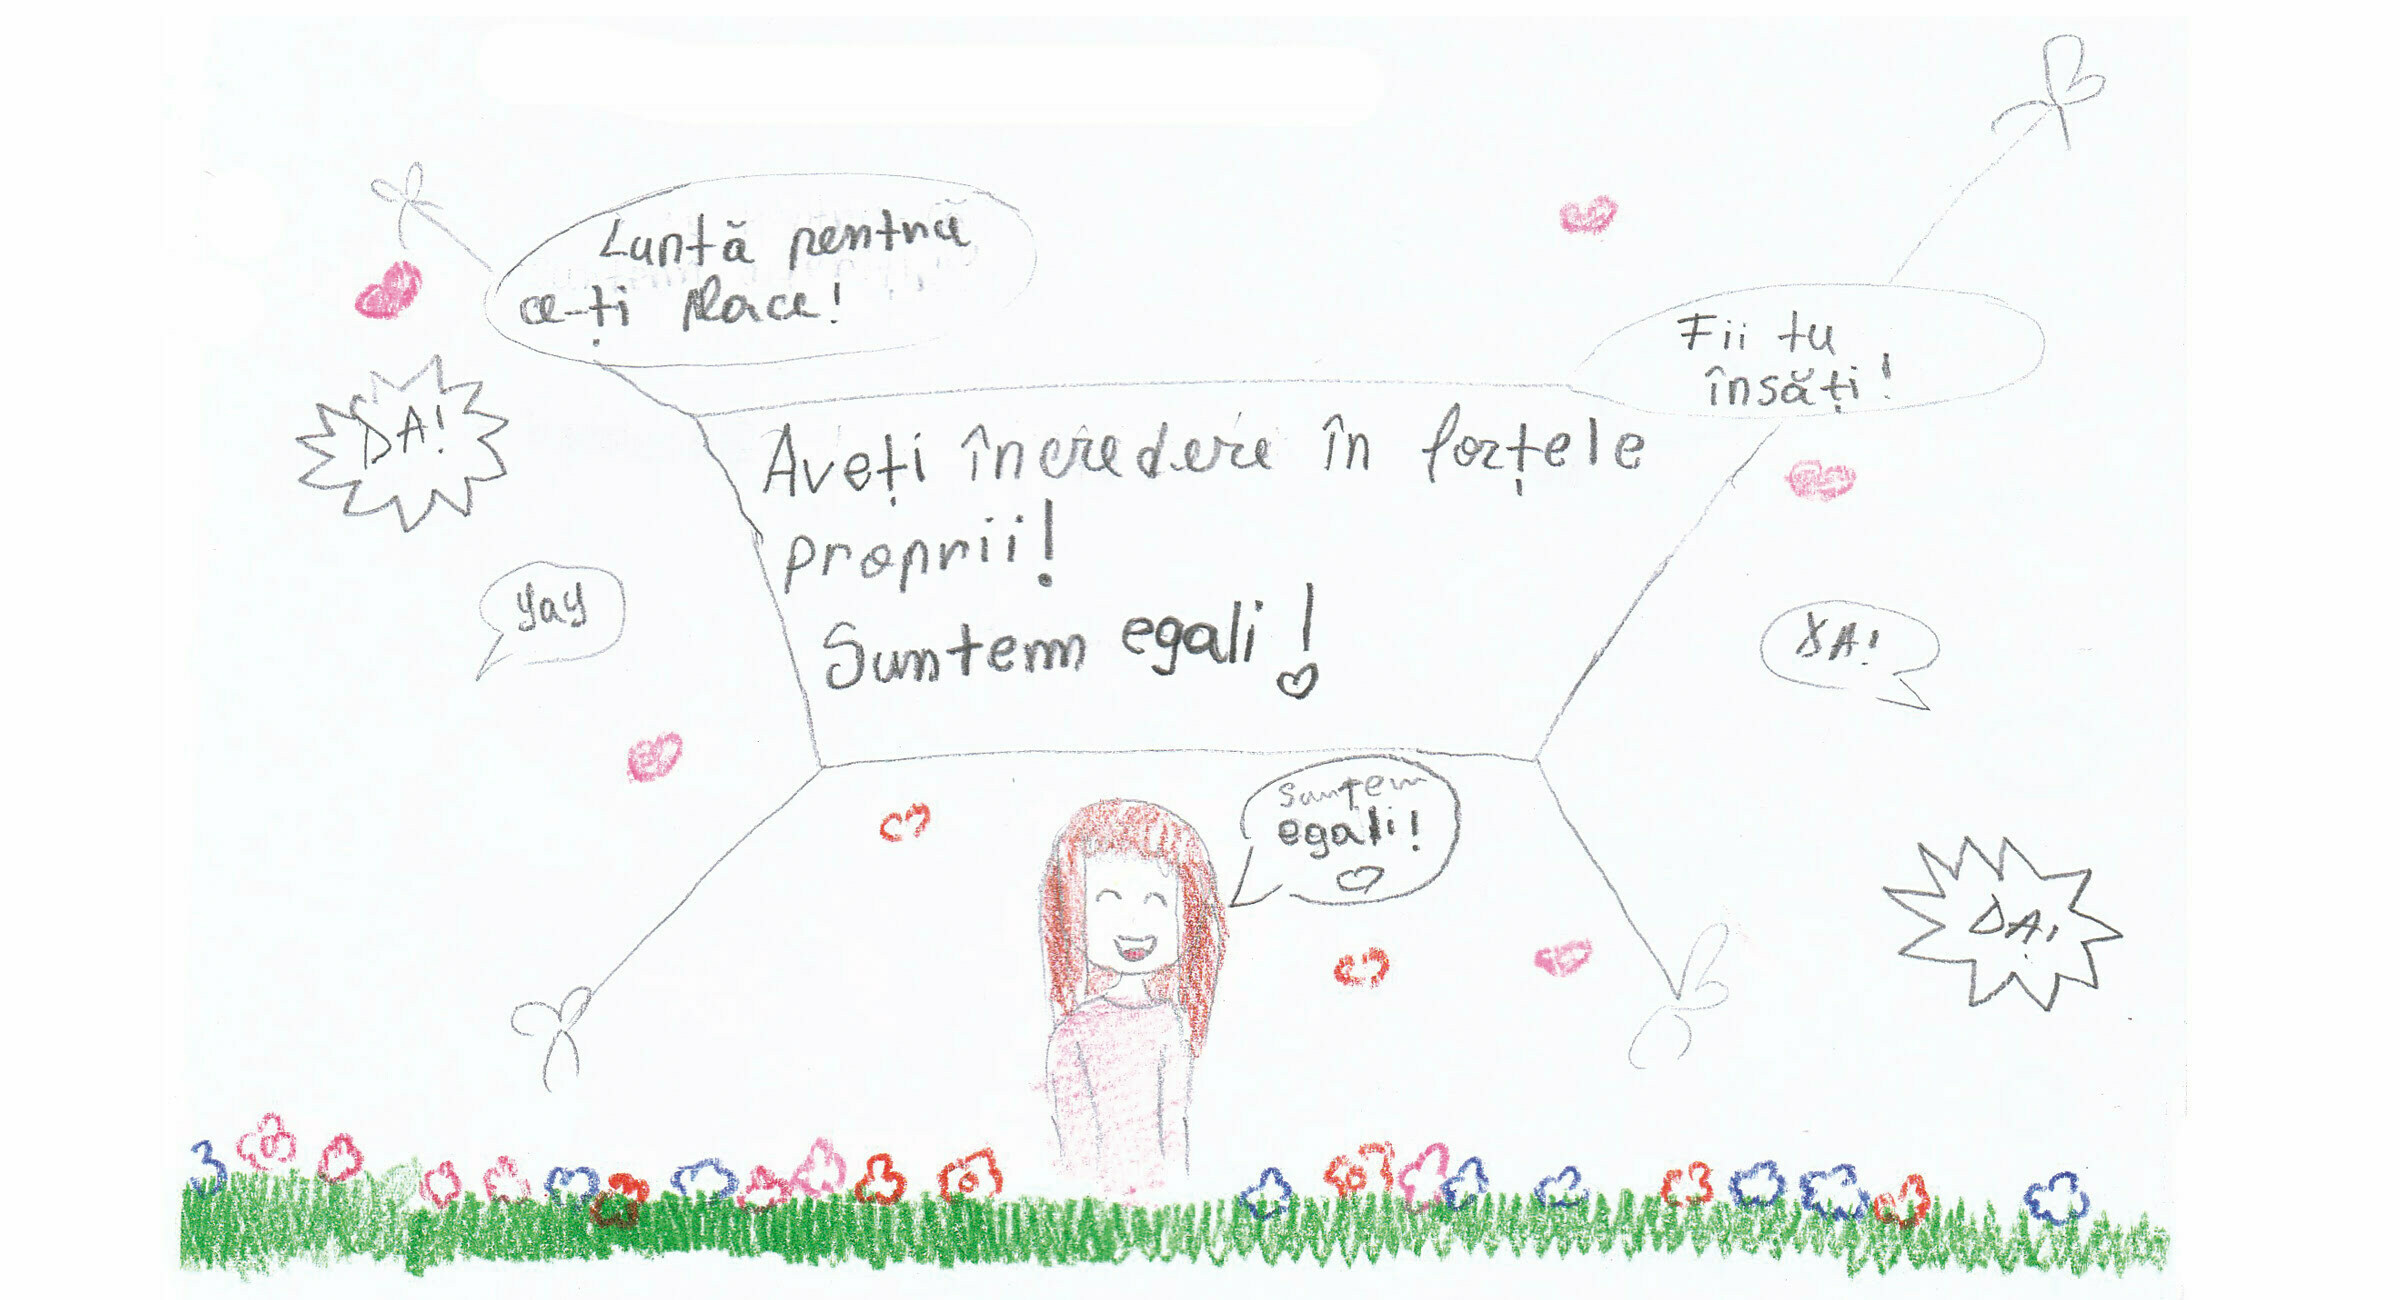 Luptă pentru
ce-ți place!
Fii tu
însăți!
DA!
Aveți încredere în forțele
proprii!
Suntem egali!
yay
DA!
Suntem
egali!
DA!